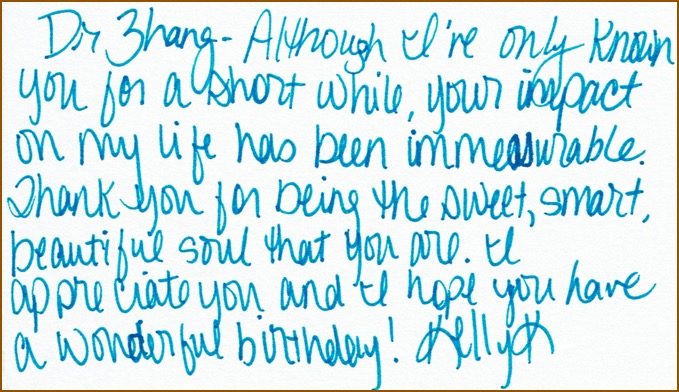 Dr Zhang - Although I've only known
you for a short while, your impact
on my life has been immeasurable.
Thank you for being the sweet, smart,
beautiful soul that you are. I
appreciate you and I hope you have
a wonderful birthday! Kelly K